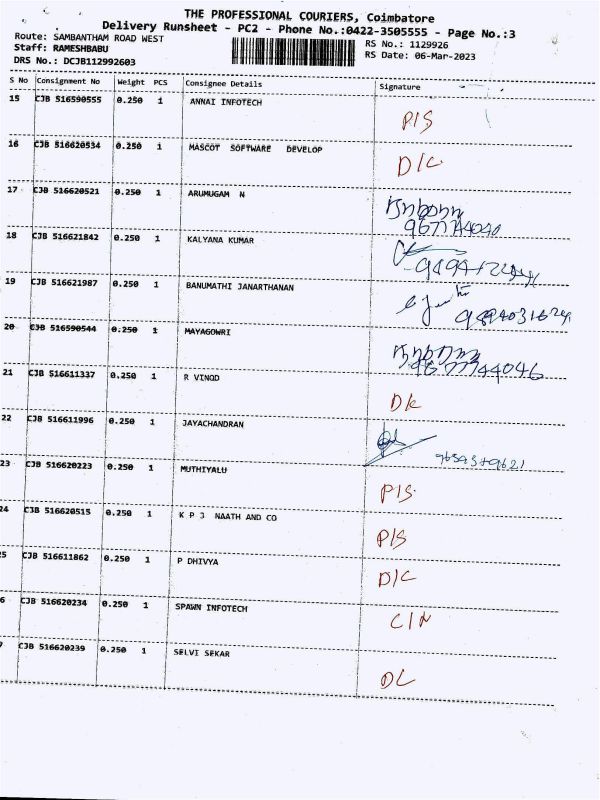 THE PROFESSIONAL COURIERS, Coimbatore
Delivery Runsheet - PC2 - Phone No.:0422-3505555 - Page No.:3
Route: SAMBANTHAM ROAD WEST
RS No.: 1129926
Staff: RAMESHBABU
RS Date: 06-Mar-2023
DRS No.: DCJB112992603
S No Consignment No Weight PCS Consignee Details Signature
15 CJB 516590555 0.250 1 ANNAI INFOTECH P/S
16 CJB 516620534 0.250 1 MASCOT SOFTWARE DEVELOP D/C
17 CJB 516620521 0.250 1 ARUMUGAM N
18 CJB 516621842 0.250 1 KALYANA KUMAR
19 CJB 516621987 0.250 1 BANUMATHI JANARTHANAN
20 CJB 516590544 0.250 1 MAYAGOWRI
9677744046
21 CJB 516611337 0.250 1 R VINOD DL
22 CJB 516611996 0.250 1 JAYACHANDRAN
23 CJB 516620223 0.250 1 MUTHIYALU P/S
24 CJB 516620515 0.250 1 K P J NAATH AND CO P/S
5 CJB 516611862 0.250 1 P DHIVYA D/C
6 CJB 516620234 0.250 1 SPAWN INFOTECH C/N
7 CJB 516620239 0.250 1 SELVI SEKAR DL